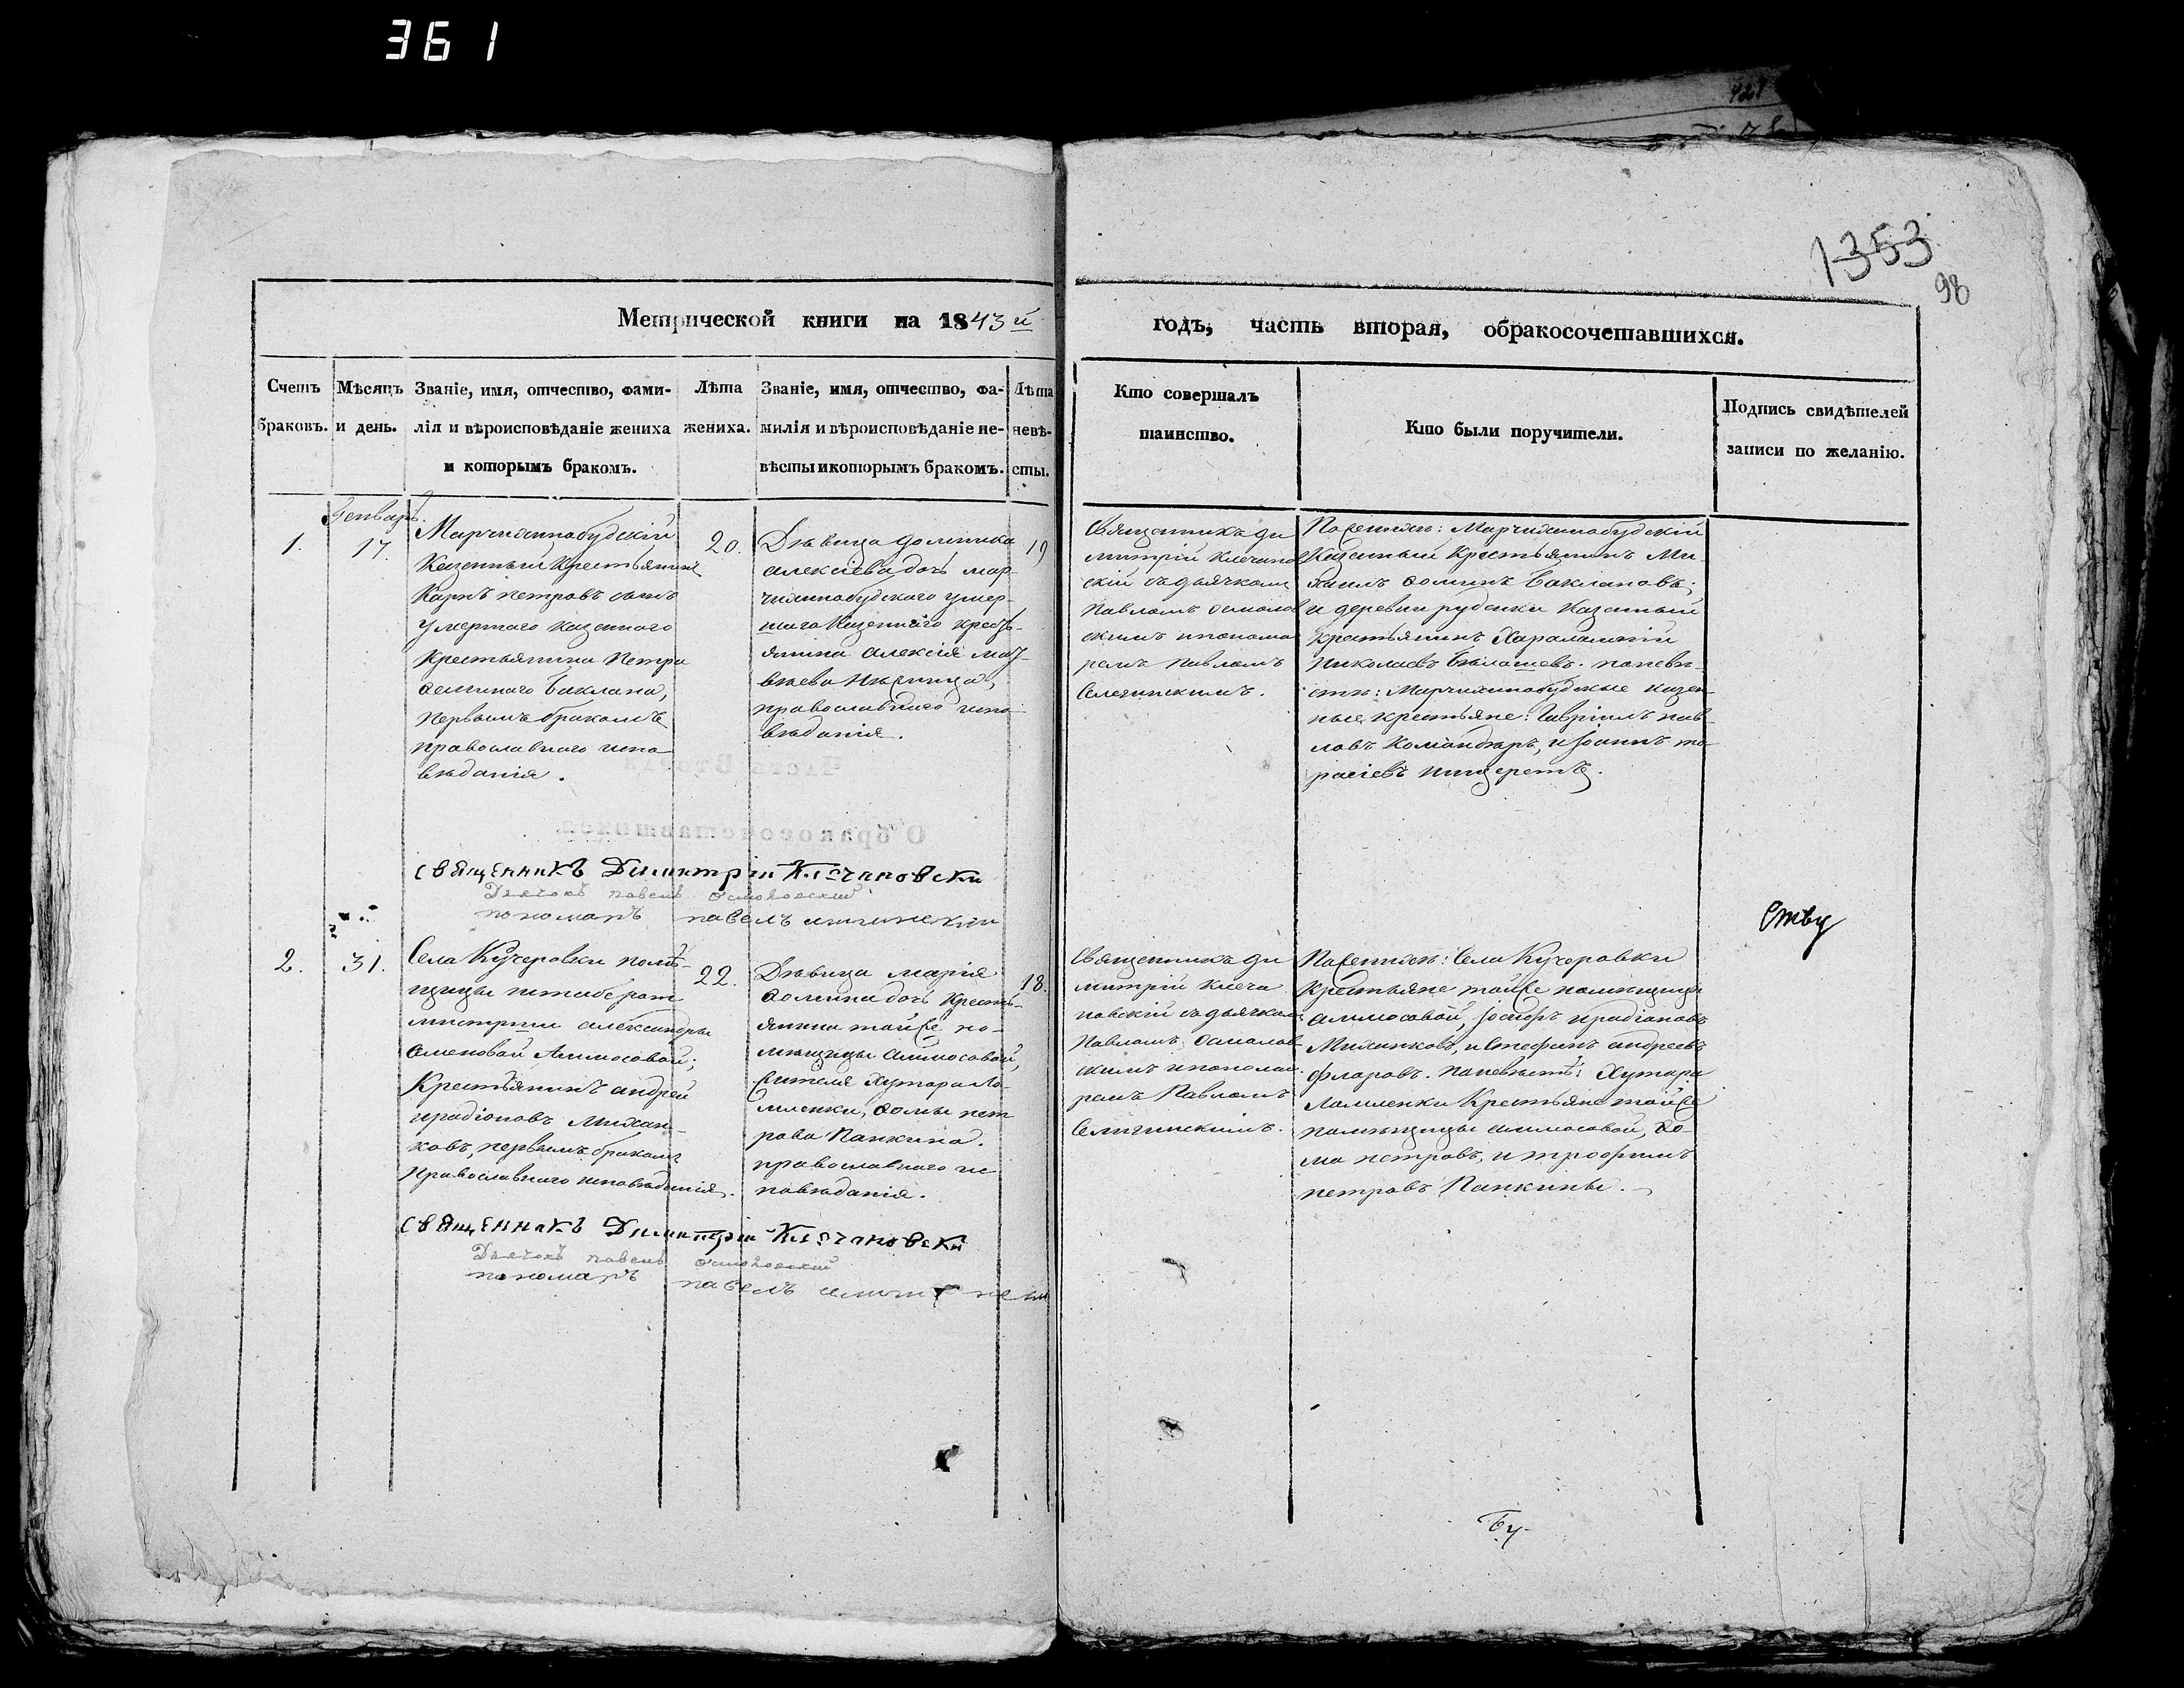 361
1353
98
Метрической книги на 1843й
годъ, часть вторая, обракосочетавшихся.
Счетъ
браковъ.
Мѣсяцъ
и день.
Званіе, имя, отчество, фами-
лія и вѣроисповѣданіе жениха
и которымъ бракомъ.
Лѣта
жениха.
Званіе, имя, отчество, фа-
милія и вѣроисповѣданіе не-
вѣсты и которымъ бракомъ.
Лѣта
невѣ-
сты.
Кто совершалъ
таинство.
Кто были поручители.
Подпись свидѣтелей
записи по желанію.
1.
Генварь.
17.
Марчихинабудскій
Казенный Крестьянинъ
Карпъ петровъ сынъ
умершаго казенного
крестьянина Петра
Баклана,
первымъ бракомъ
православного испо
вѣданія.
20.
Дѣвица домника
алексіева дочь мар-
чихинобудского умер-
шаго Казенного кресть-
янина алексія мат-
вѣева
православного испо
вѣданія.
19
Священникъ ди
митрій Клечанов
скій съ дьячкомъ
Павломъ осмолов
скимъ и понома
ремъ Павломъ
Селегинскимъ.
По женихѣ: Марчихинабудскій
Казенный Крестьянинъ Ми-
хаилъ Ѳоминъ Баклановъ;
и деревни руденки Казенный
крестьянинъ Харалампій
Николаевъ Бѣлашевъ. по невѣ-
стѣ: Марчихинабудскые казен-
ные крестьяне: Гавріилъ пав-
ловъ Командиръ, и Іоаннъ та-
расіевъ
священникъ Димитрій Клѣчановски
Дьячокъ павелъ осмоловский
пономарь павелъ
2.
31.
Села Кучеровки помѣ-
щицы штабсъ рот
мистрши александры
семеновой Алимосовой;
Крестьянинъ андрей
иродіоновъ Михай-
ковъ, первымъ бракомъ
Православного исповѣданія.
22.
Дѣвица марія
Ѳомина дочь кресть-
янина тойже по-
мѣщицы Алимосовой,
жителя Хутора Ло-
мленки, Ѳомы пет
рова Панкина.
православного ис
повѣданія.
18.
Священникъ ди
митрій Клеча
новскій съ дьячкомъ
Павломъ осмолов
скимъ и понома
ремъ Павломъ
Селегинскимъ.
По женихѣ: Села Кучеровки
Крестьяне тойже помѣщицы
алимосовой, Іосифъ иродіоновъ
Михайковъ, и Стефанъ андреевъ
Фларовъ. По невѣстѣ: Хутора
Ломленки Крестьяне тойже
помѣщицы алимосовой, Ѳо-
ма петровъ, и трофимъ
петровъ Панкины.
священникъ Димитрій Клѣчановски
Дьячокъ павелъ осмоловский
пономарь павелъ